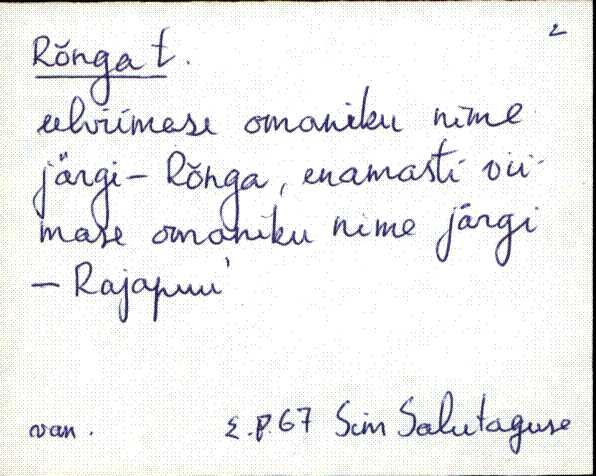 2
Rõnga t.
eelviimase omaniku nime
järgi – Rõnga, enamasti vii-
mase omaniku nime järgi
– Rajapuu'
van. E.P.67 Sim Salutaguse